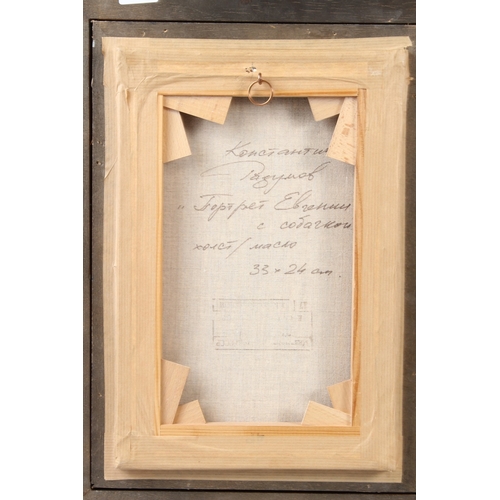 Константин
Разумов
"Портрет Евгении
с собачкой
холст/масло
33 × 24 см.